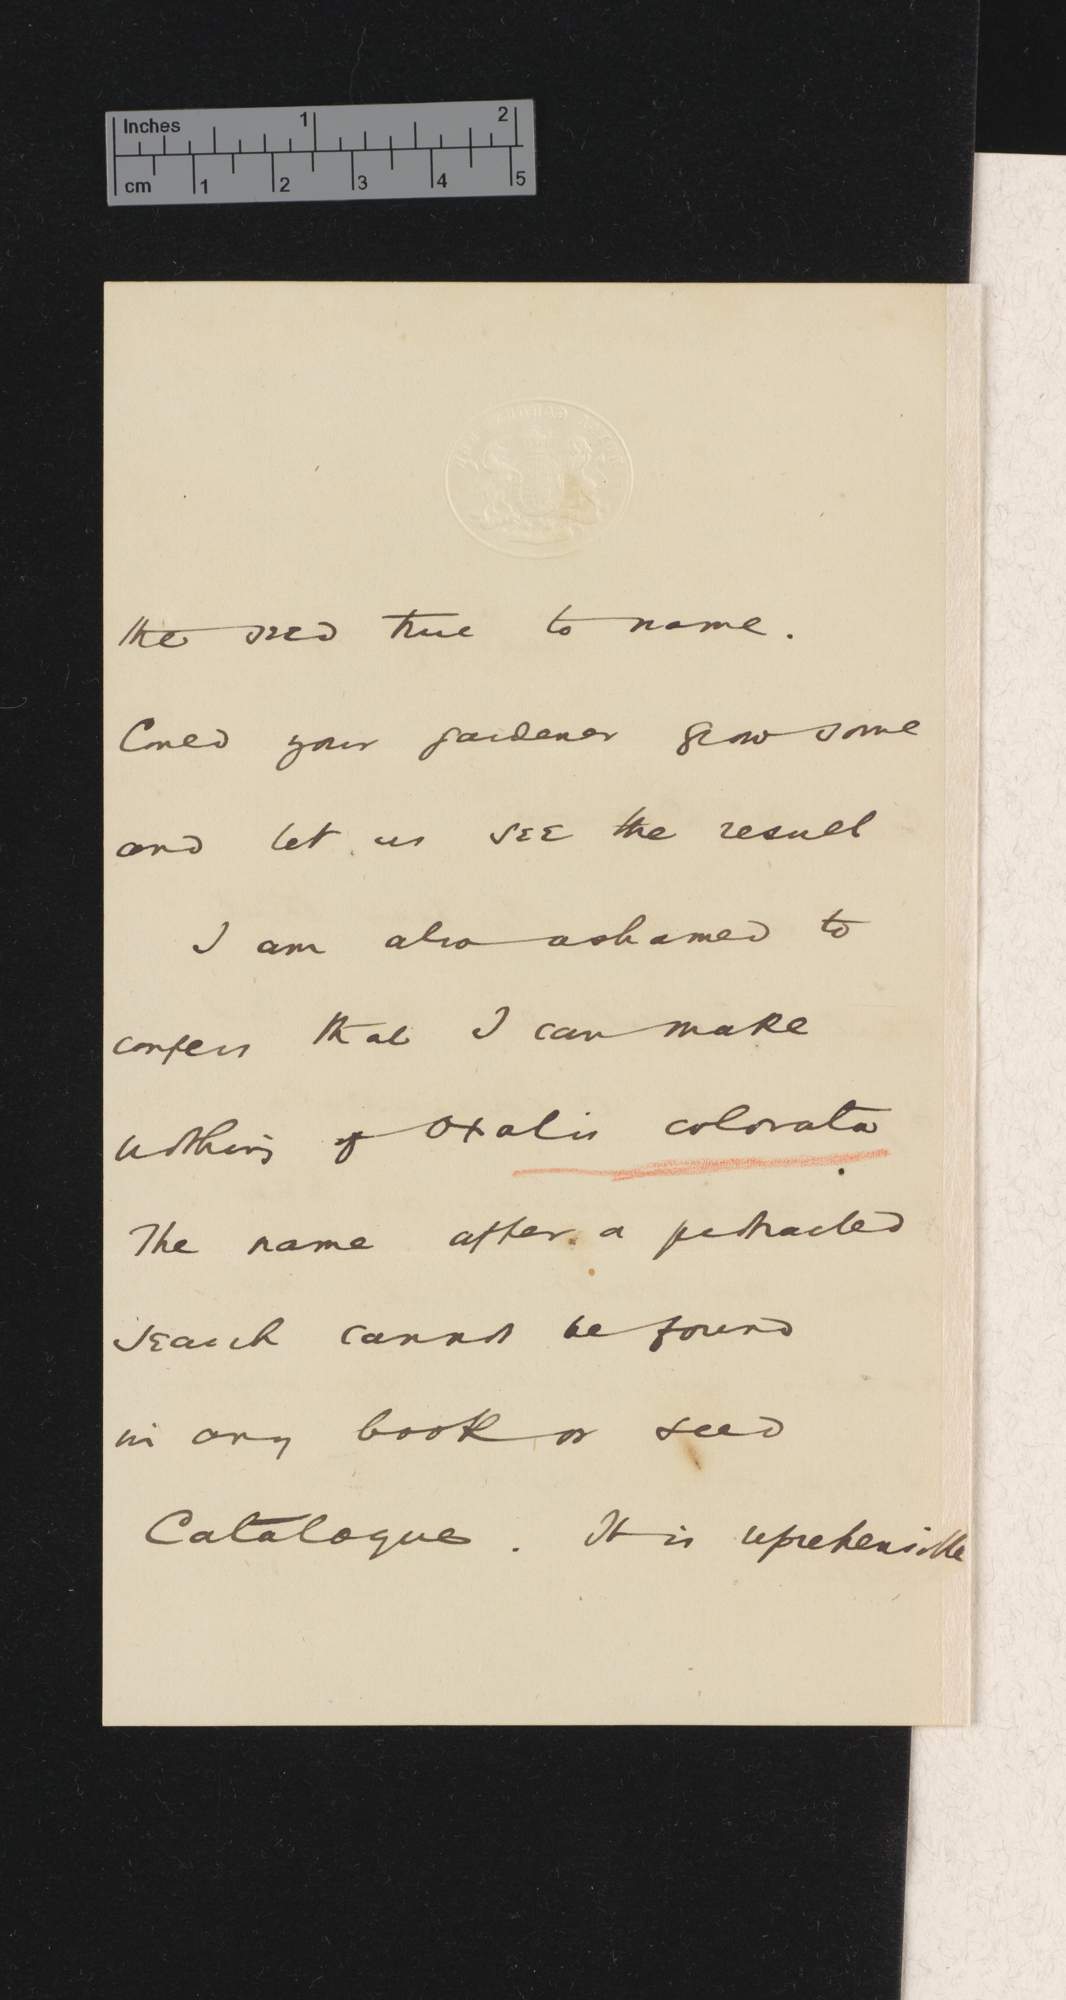 Inches 1 2
cm 1 2 3 4 5
the seed true to name.
Could your gardener grow some
and let us see the result
I am also ashamed to
confess that I can make
nothing of Oxalis colorata
The name after a protracted
search cannot be found
in any book or seed
Catalogue. It is reprehensible